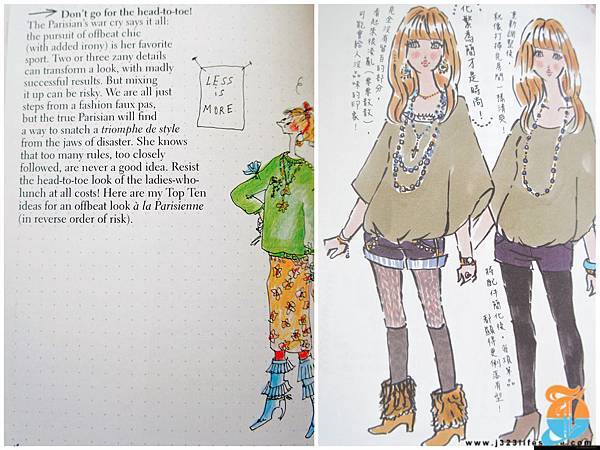 Don't go for the head-to-toe!
The Parisian's war cry says it all:
the pursuit of offbeat chic
(with added irony) is her favorite
sport. Two or three zany details
can transform a look, with madly
successful results. But mixing
it up can be risky. We are all just
steps from a fashion faux pas,
but the true Parisian will find
a way to snatch a triomphe de style
from the jaws of disaster. She knows
that too many rules, too closely
followed, are never a good idea. Resist
the head-to-toe look of the ladies-who-
lunch at all costs! Here are my Top Ten
ideas for an offbeat look à la Parisienne
(in reverse order of risk).
LESS
is
MORE
重新調整後，
就像打掃完房間一樣清爽！
化繁為簡才是時尚！
完全沒有留白的部分，
看起來很凌亂
可能會給人沒品味的印象！
將配件簡化後，每項單品
都顯得更俐落有型！
www.j323lifes